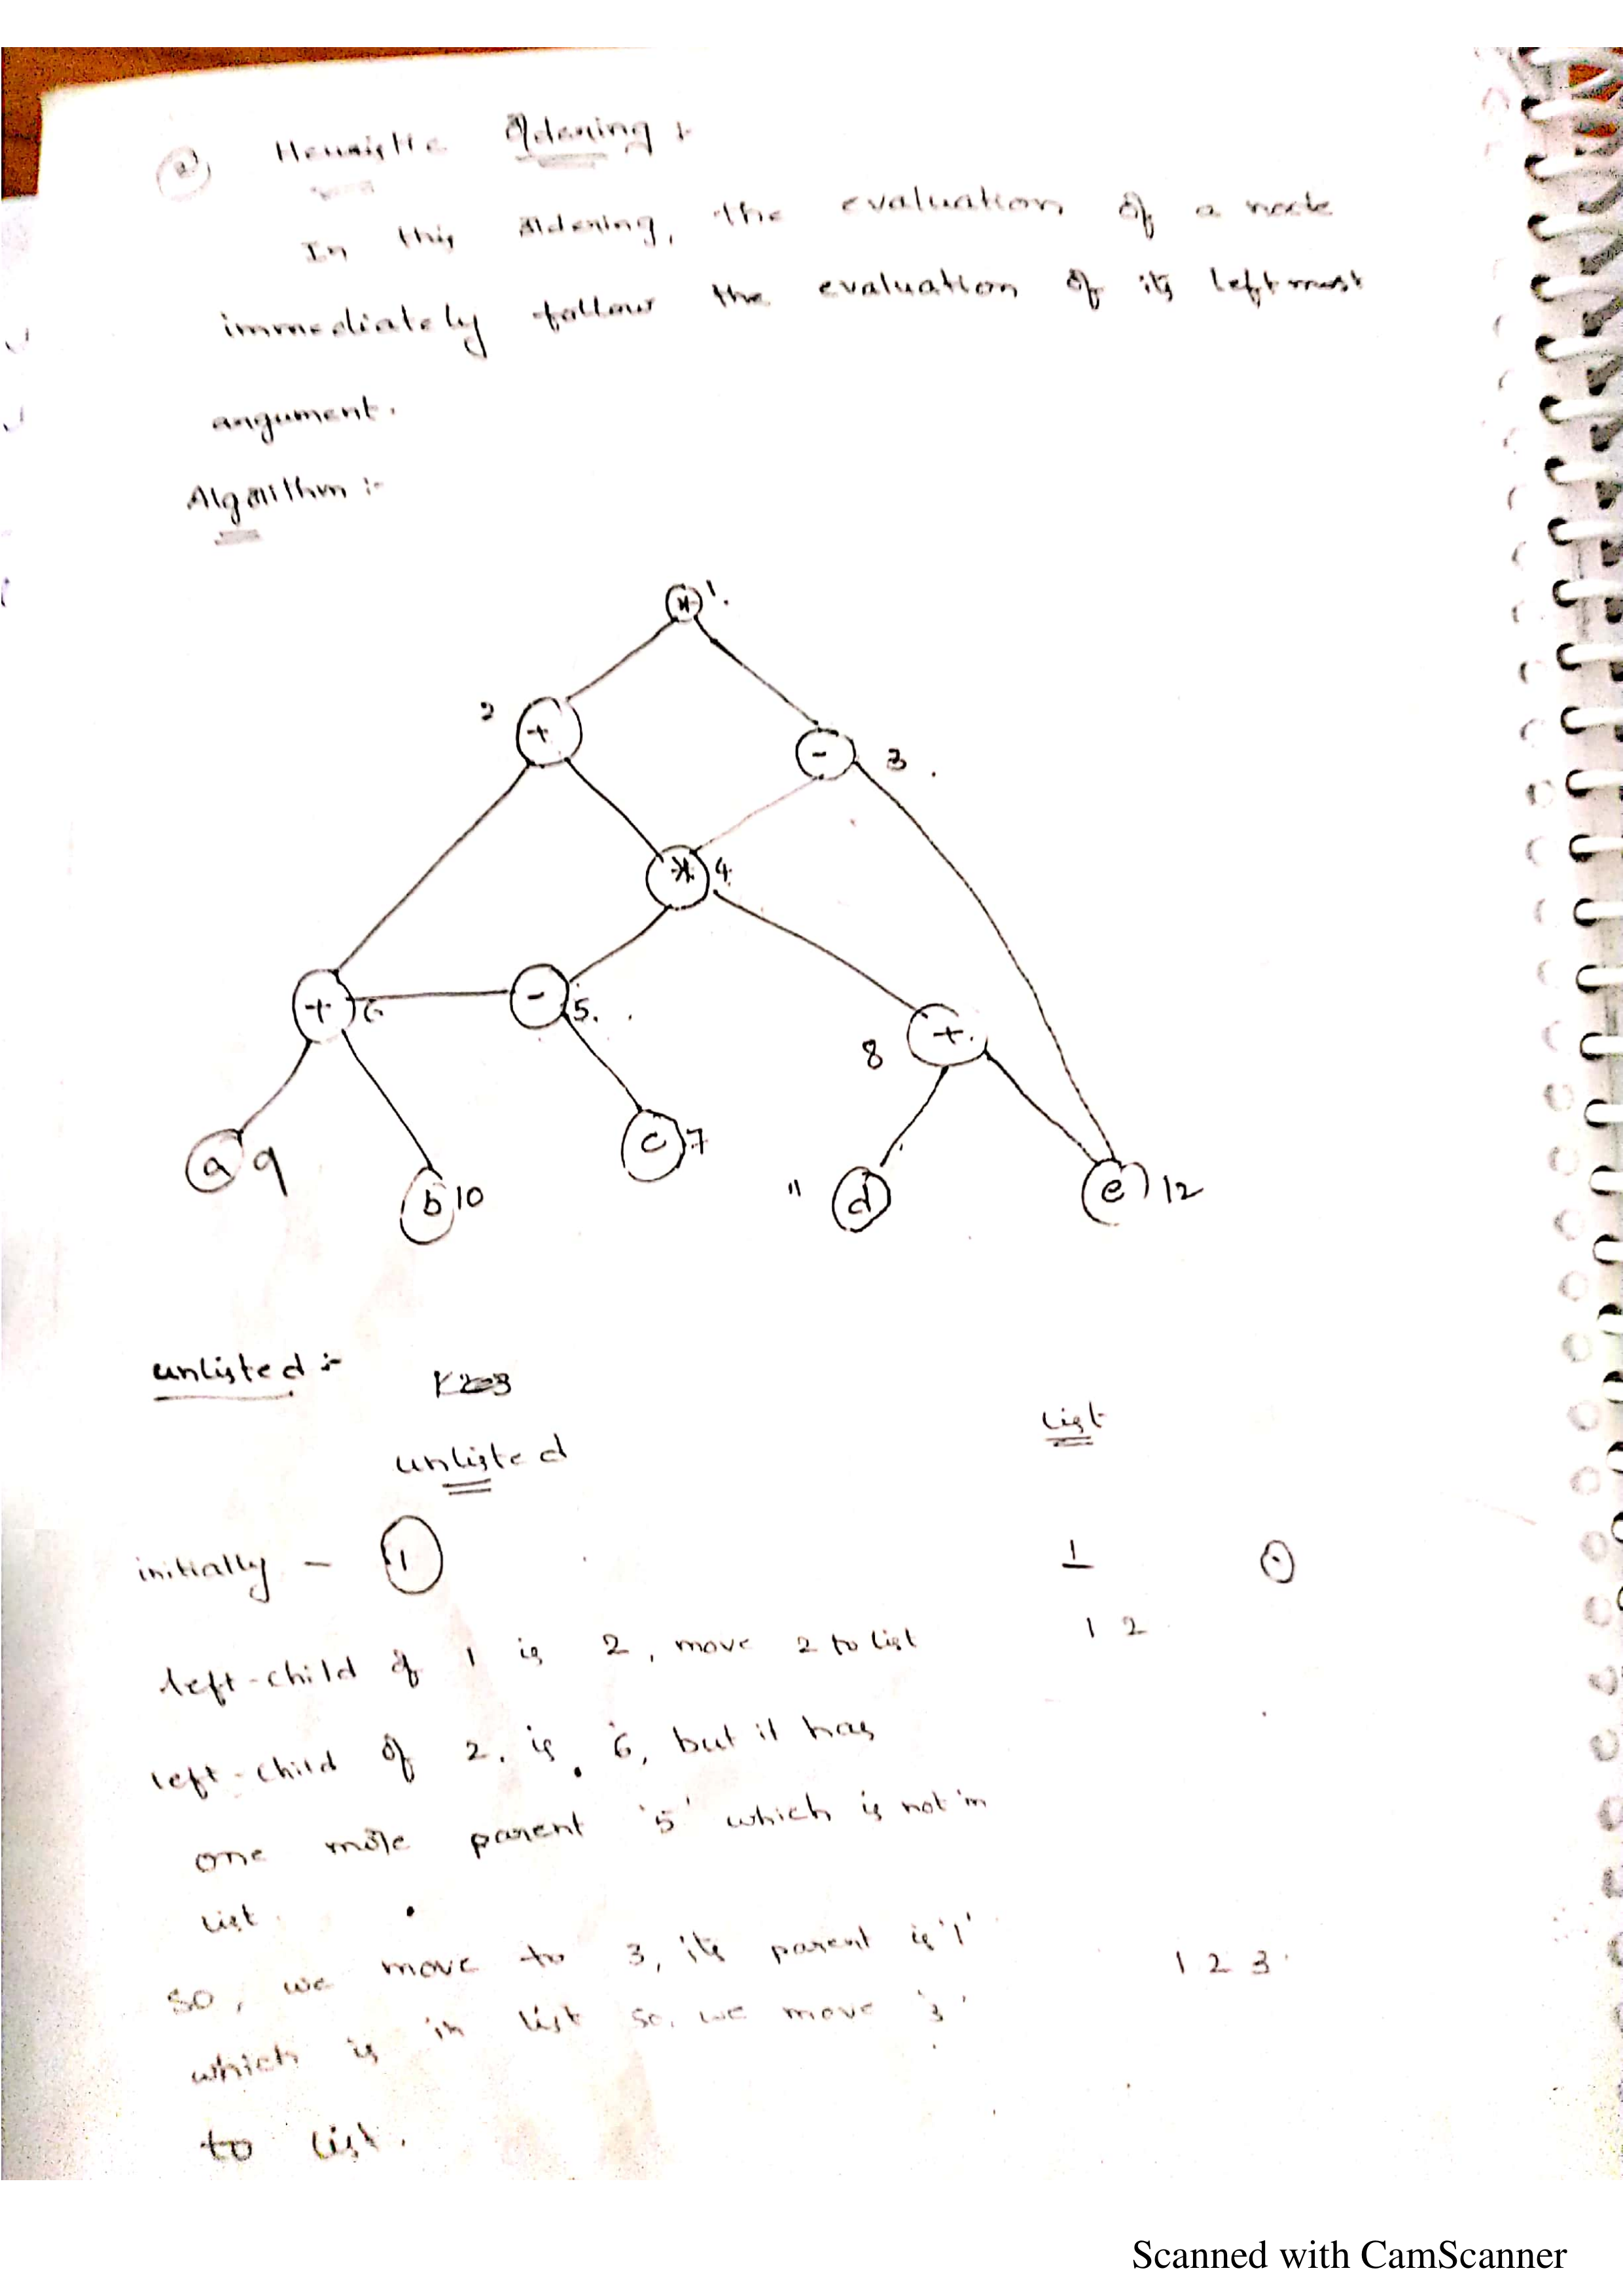 2) Heuristic Ordering :-
In this ordering, the evaluation of a node
immediately follow the evaluation of its leftmost
argument.
Algorithm :-
* 1.
2 +
- 3.
* 4
+ 6
- 5.
8 +
a 9
b 10
c 7
11 d
e 12
unlisted :-
unlisted
List
initially - 1
1
left-child of 1 is 2, move 2 to list
1 2
left-child of 2. is 6, but it has
one more parent '5' which is not in
list.
so, we move to 3, its parent is '1'
1 2 3.
which is in list so, we move '3'
to list.
Scanned with CamScanner